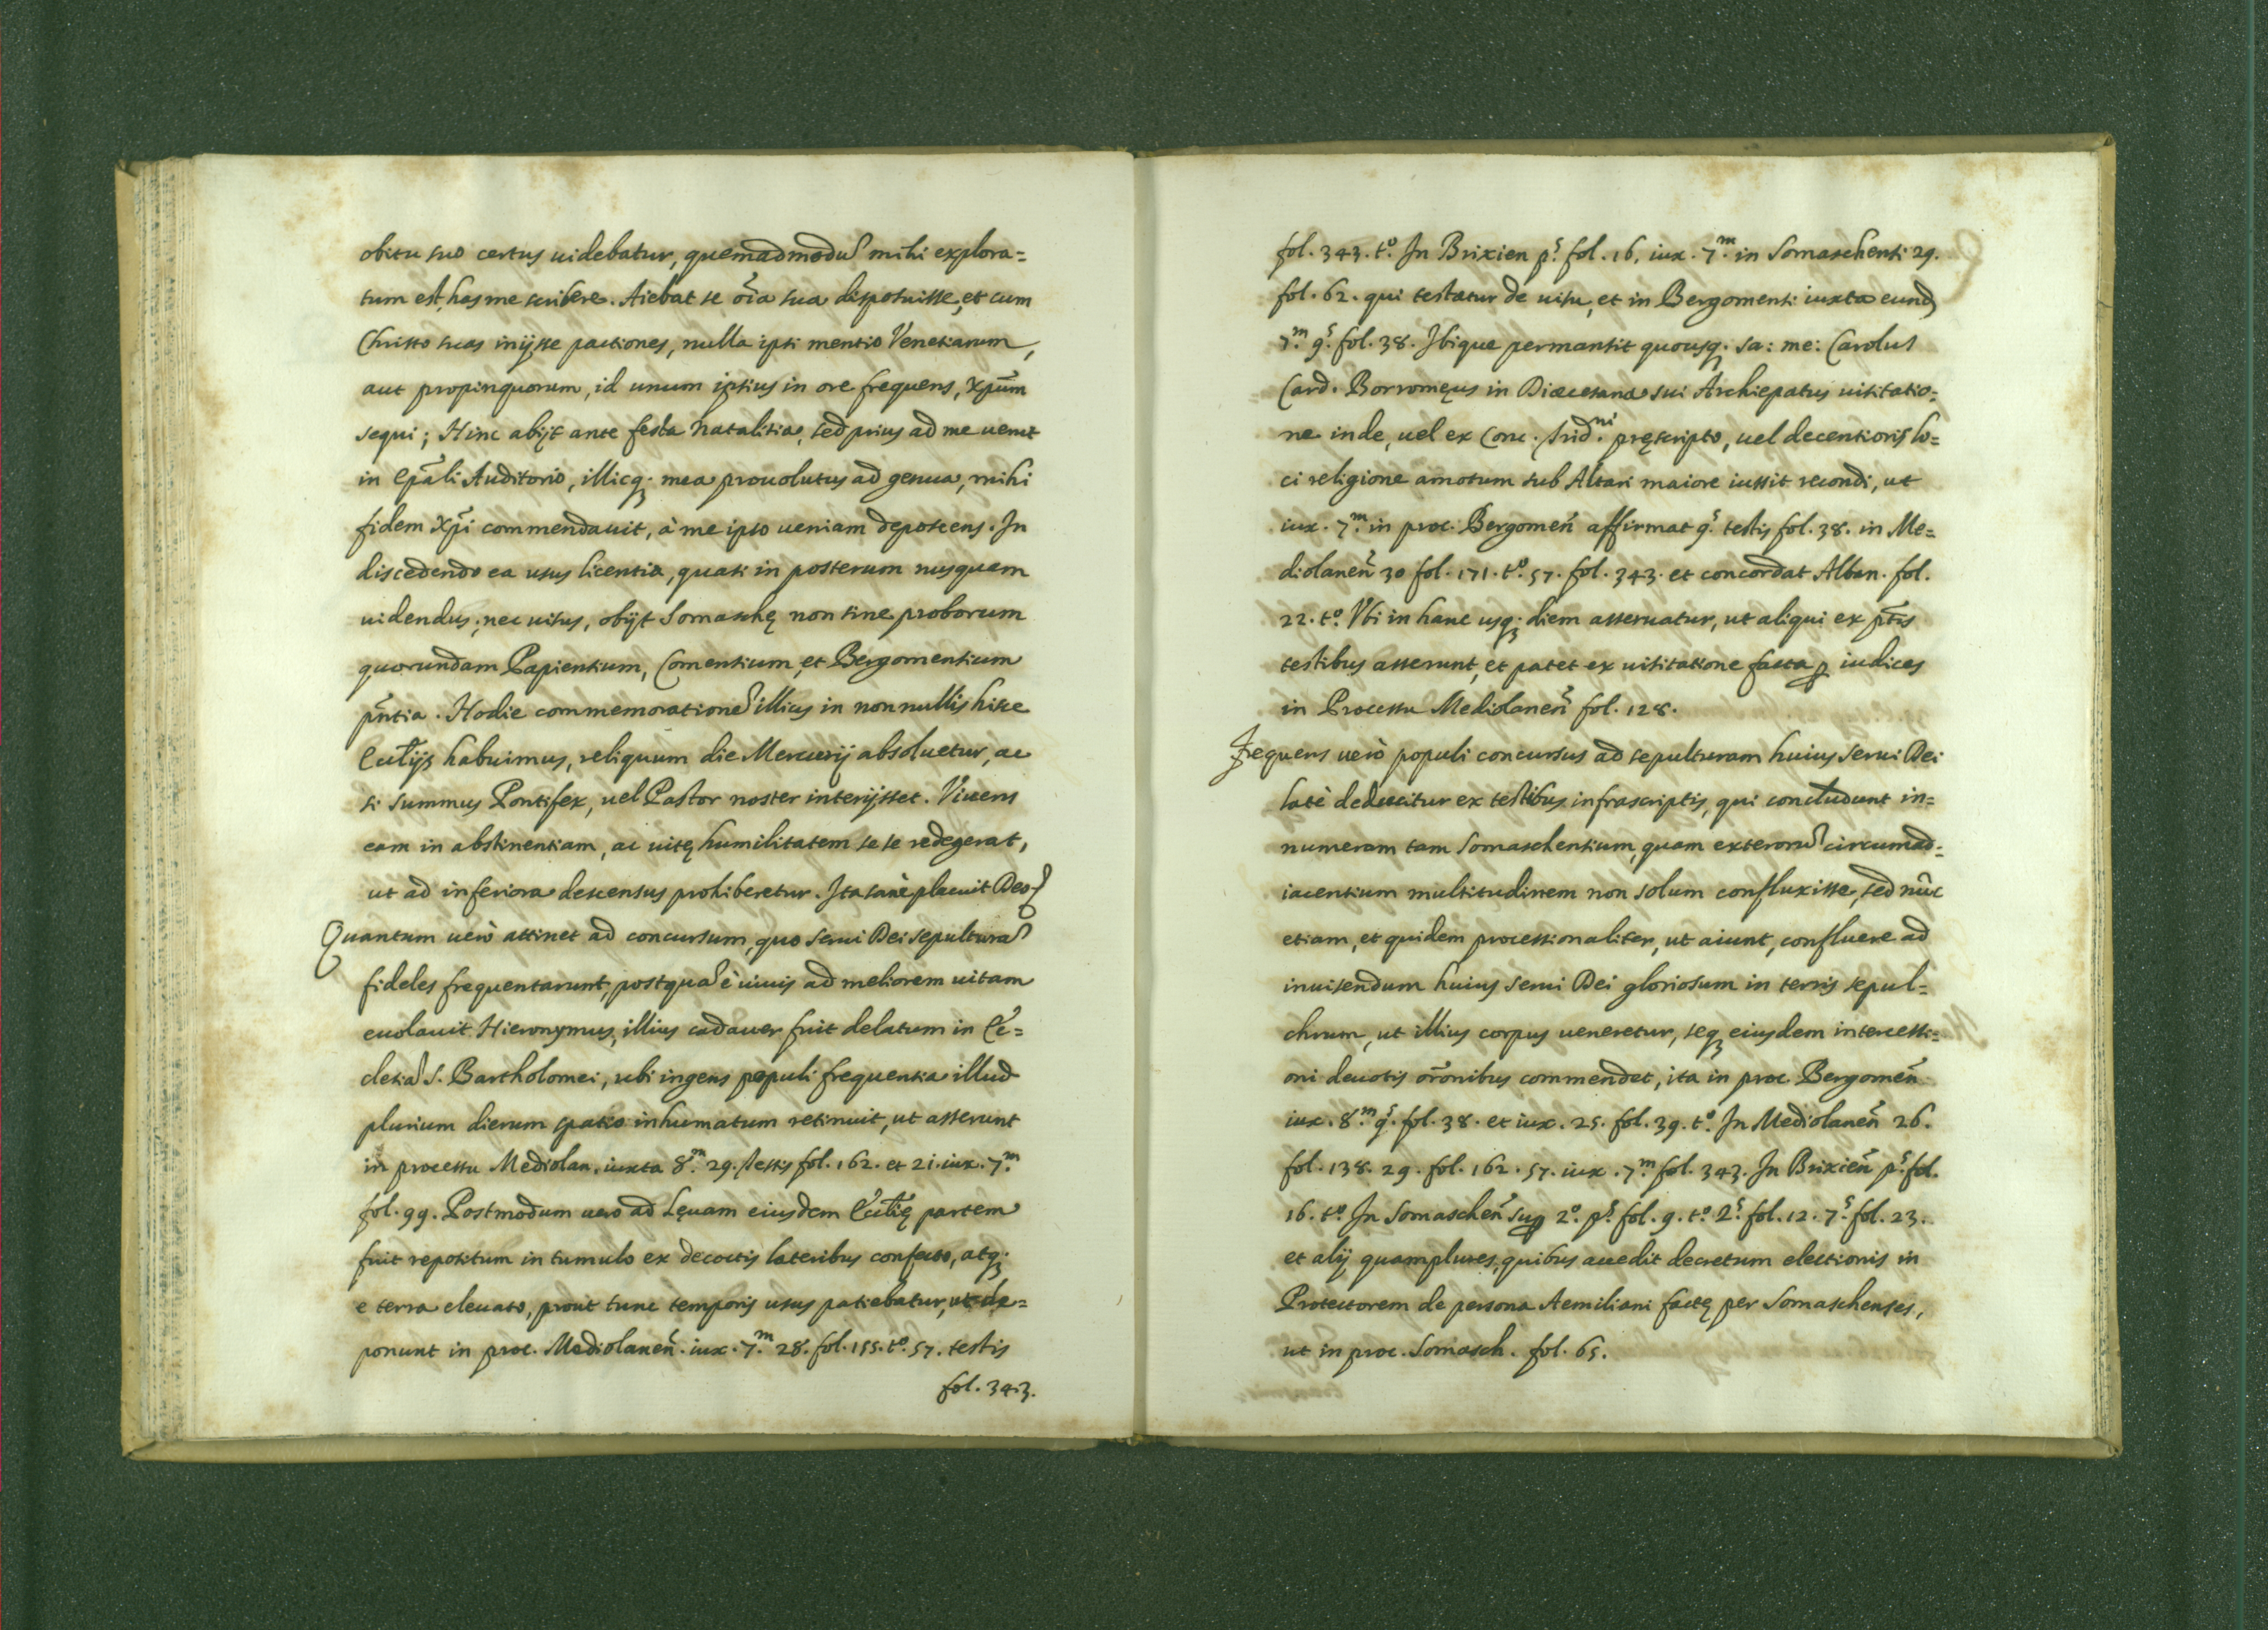 obitu suo certus uidebatur, quemadmodũ mihi explora=
tum est, has me scribere. Aiebat se oĩa sua disposuisse, et cum
Christo suas inijsse pactiones, nulla ipsi mentio Venetiarum,
aut propinquorum, id unum ipsius in ore frequens, xpũm
sequi; Hinc abijt ante festa natalitia, sed prius ad me uenit
in Epãli Auditorio, illicq; mea prouolutus ad genua, mihi
fidem xpĩ commendauit, à me ipso ueniam deposcens. In
discedendo ea usus licentia, quasi in posterum nusquam
uidendus; nec uisus, obijt Somaschę non sine proborum
quorundam Papiensium, Comensium, et Bergomensium
pñtia. Hodie commemorationẽ illius in nonnullis hisce
Ecclijs habuimus, reliquum die Mercurij absoluetur, ac
si Summus Pontifex, uel Pastor noster interijsset. Viuens
eam in abstinentiam, ac uitę humilitatem se se redegerat,
ut ad inferiora descensus prohiberetur. Ita sanè placuit Deo
Quantum uerò attinet ad concursum, quo Serui Dei sepulturã
fideles frequentarunt, postquã è uiuis ad meliorem uitam
euolauit Hieronymus, illius cadauer fuit delatum in Ec=
clesiã S. Bartholomei, ubi ingens populi frequentia illud
plurium dierum spatio inhumatum retinuit, ut asserunt
in processu Mediolan. iuxta 8.m 29. testis fol. 162. et 21. iux. 7.m
fol. 99. Postmodum uero ad Lęuam eiusdem Ecclię partem
fuit repositum in tumulo ex decoctis lateribus confecto, atq;
e terra eleuato, prout tunc temporis usus patiebatur, ut de=
ponunt in proc. Mediolaneñ. iux. 7.m 28. fol. 155. t.o 57. testis
fol. 343.
fol. 343. t.o In Brixien p.s fol. 16, iux. 7.m in Somaschensi 29.
fol. 62. qui testatur de uisu, et in Bergomensi iuxta eund
7.m 9.s fol. 38. Ibique permansit quousq; sa: me: Carolus
Card. Borromęus in Diœcesana sui Archiepatus uisitatio=
ne inde, uel ex Conc. Trid.ni pręscripto, uel decentioris lo=
ci religione amotum sub Altari maiore iussit recondi, ut
iux. 7.m in proc. Bergomeñ affirmat 9.s testis fol. 38. in Me=
diolaneñ 30 fol. 171. t.o 57. fol. 343. et concordat Alban. fol.
22. t.o Vbi in hanc usq; diem asseruatur, ut aliqui ex ptis
testibus asserunt, et patet ex uisitatione facta ꝑ iudices
in Processu Mediolaneñ fol. 128.
Frequens uerò populi concursus ad sepulturam huius Serui Dei
latè deducitur ex testibus infrascriptis, qui concludunt in=
numeram tam Somaschensium, quam exterorũ circumad=
iacentium multitudinem non solum confluxisse, sed nũc
etiam, et quidem processionaliter, ut aiunt, confluere ad
inuisendum huius Serui Dei gloriosum in terris sepul=
chrum, ut illius corpus ueneretur, seq; eiusdem intercessi=
oni deuotis orõnibus commendet, ita in proc. Bergomeñ
iux. 8.m 9.s fol. 38. et iux. 25. fol. 39. t.o In Mediolaneñ 26.
fol. 138. 29. fol. 162. 57. iux. 7.m fol. 343. In Brixieñ p.s fol.
16. t.o In Somascheñ suꝑ 2.o p.s fol. 9. t.o 2.s fol. 12. 7.s fol. 23.
et alij quamplures, quibus accedit decretum electionis in
Protectorem de persona Aemiliani factę per Somaschenses,
ut in proc. Somasch. fol. 65.